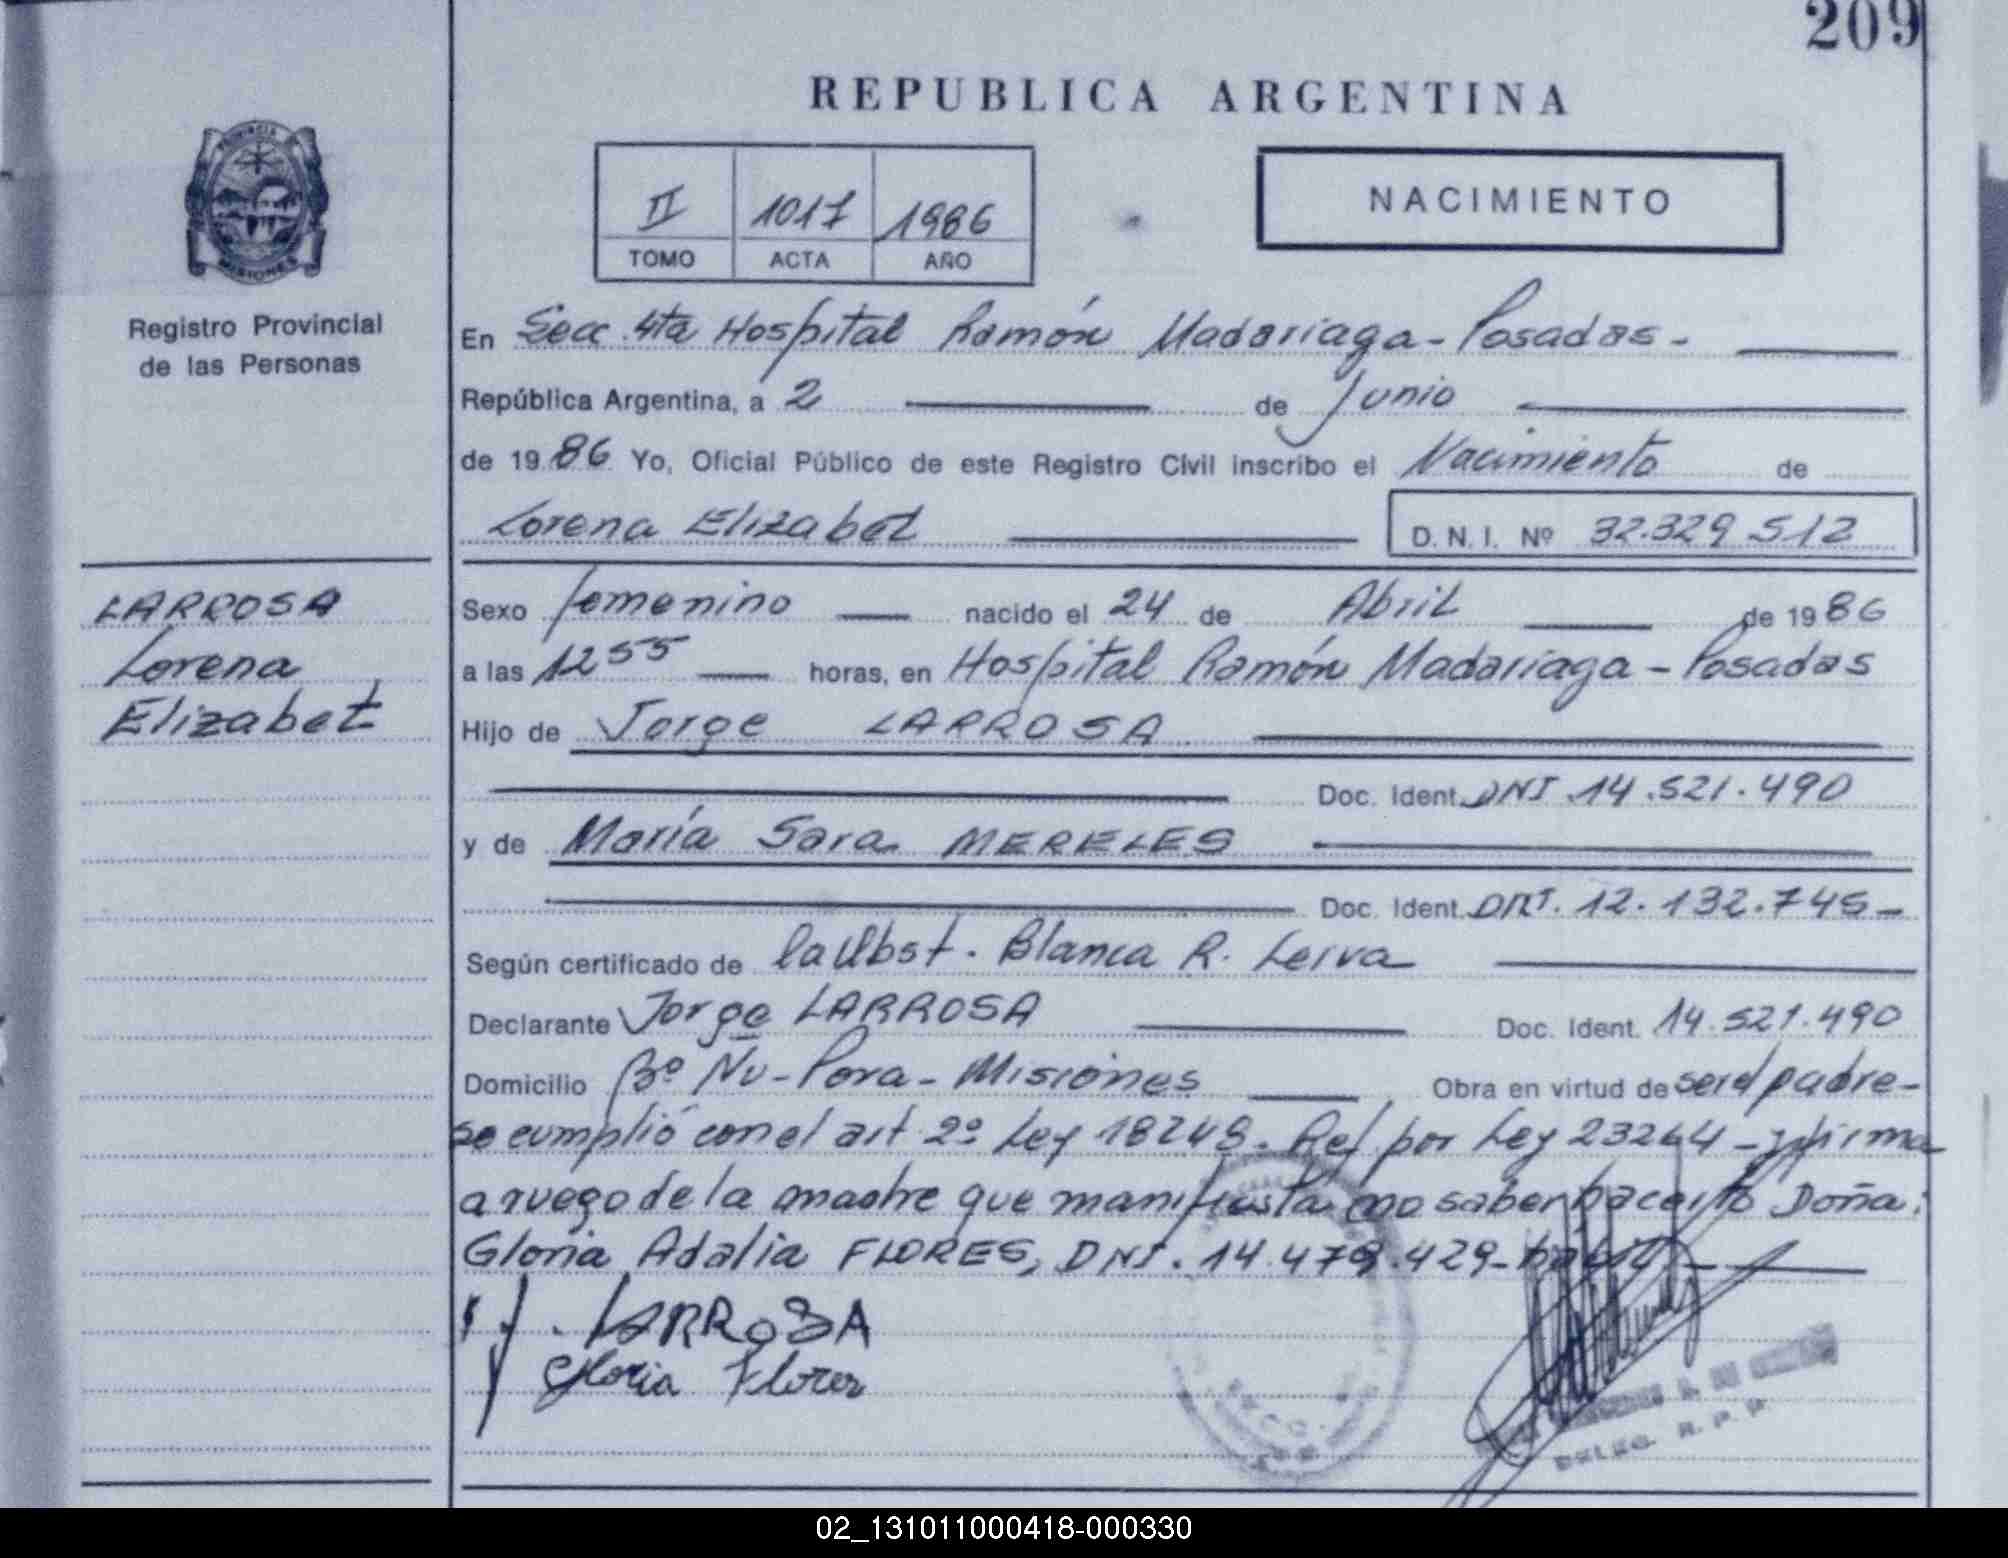 209
REPUBLICA ARGENTINA
PROVINCIA
MISIONES
Registro Provincial
de las Personas
II 1017 1986
TOMO ACTA AÑO
NACIMIENTO
En Secc. 4ta Hospital Ramón Madariaga - Posadas -
República Argentina, a 2 de Junio
de 1986 Yo, Oficial Público de este Registro Civil inscribo el Nacimiento de
Lorena Elizabet D.N.I. Nº 32.329.512
LARROSA
Lorena
Elizabet
Sexo femenino nacido el 24 de Abril de 1986
a las 12 55 horas, en Hospital Ramón Madariaga - Posadas
Hijo de Jorge LARROSA
Doc. Ident. DNI. 14.521.490
y de María Sara MERELES
Doc. Ident. DNI. 12.132.745 -
Según certificado de la Obst. Blanca R. Leiva
Declarante Jorge LARROSA Doc. Ident. 14.521.490
Domicilio Bº Ñu-Pora - Misiones Obra en virtud de ser el padre -
se cumplió con el art 2º Ley 18248. Ref por Ley 23264 - y firma
a ruego de la madre que manifiesta no saber hacerlo Doña:
Gloria Adalia FLORES, DNI. 14.479.429 - habil -
J. LARROSA
Gloria Flores
DELEG. R. P. P.
02_131011000418-000330